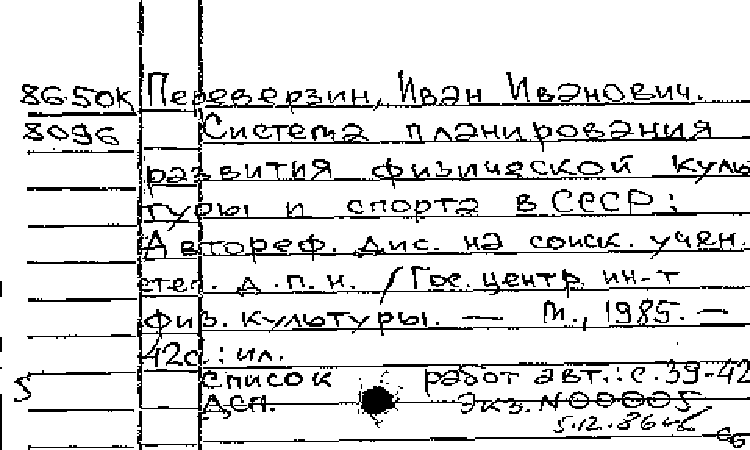 86.50К Переверзин, Иван Иванович.
8096 Система планирования
развития физической куль
туры и спорта в СССР:
Автореф. дис. на соиск. учен.
степ. д.п.н. / Гос. центр ин-т
физ. культуры. — М., 1985. —
42с.: ил.
Список работ авт.: с. 39-42
ДСП. Экз. №00005
5.12.86